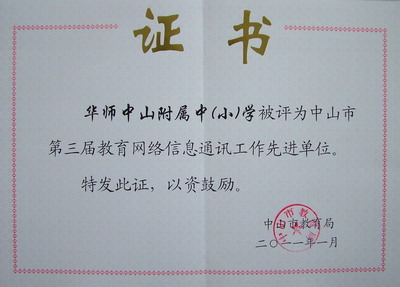 证书
华师中山附属中(小)学被评为中山市
第三届教育网络信息通讯工作先进单位。
特发此证，以资鼓励。
中山市教育局
二〇一一年一月